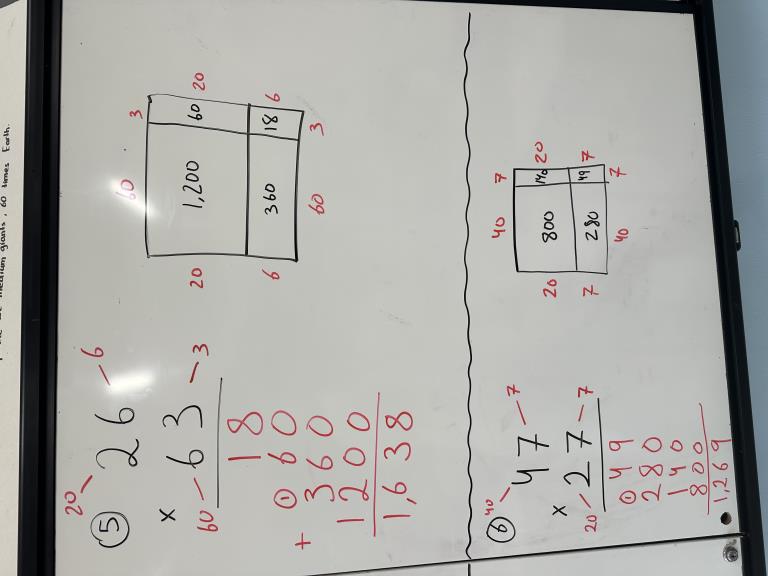 medium giants, 60 times Earth.
20 6
5 26
× 63 3
60
18
1 60
+ 360
1200
1,638
60 3
20 1,200 60 20
6 360 18 6
60 3
40 7
6 47
× 27 7
20
1 49
280
140
800
1,269
40 7
20 800 140 20
7 280 49 7
40 7